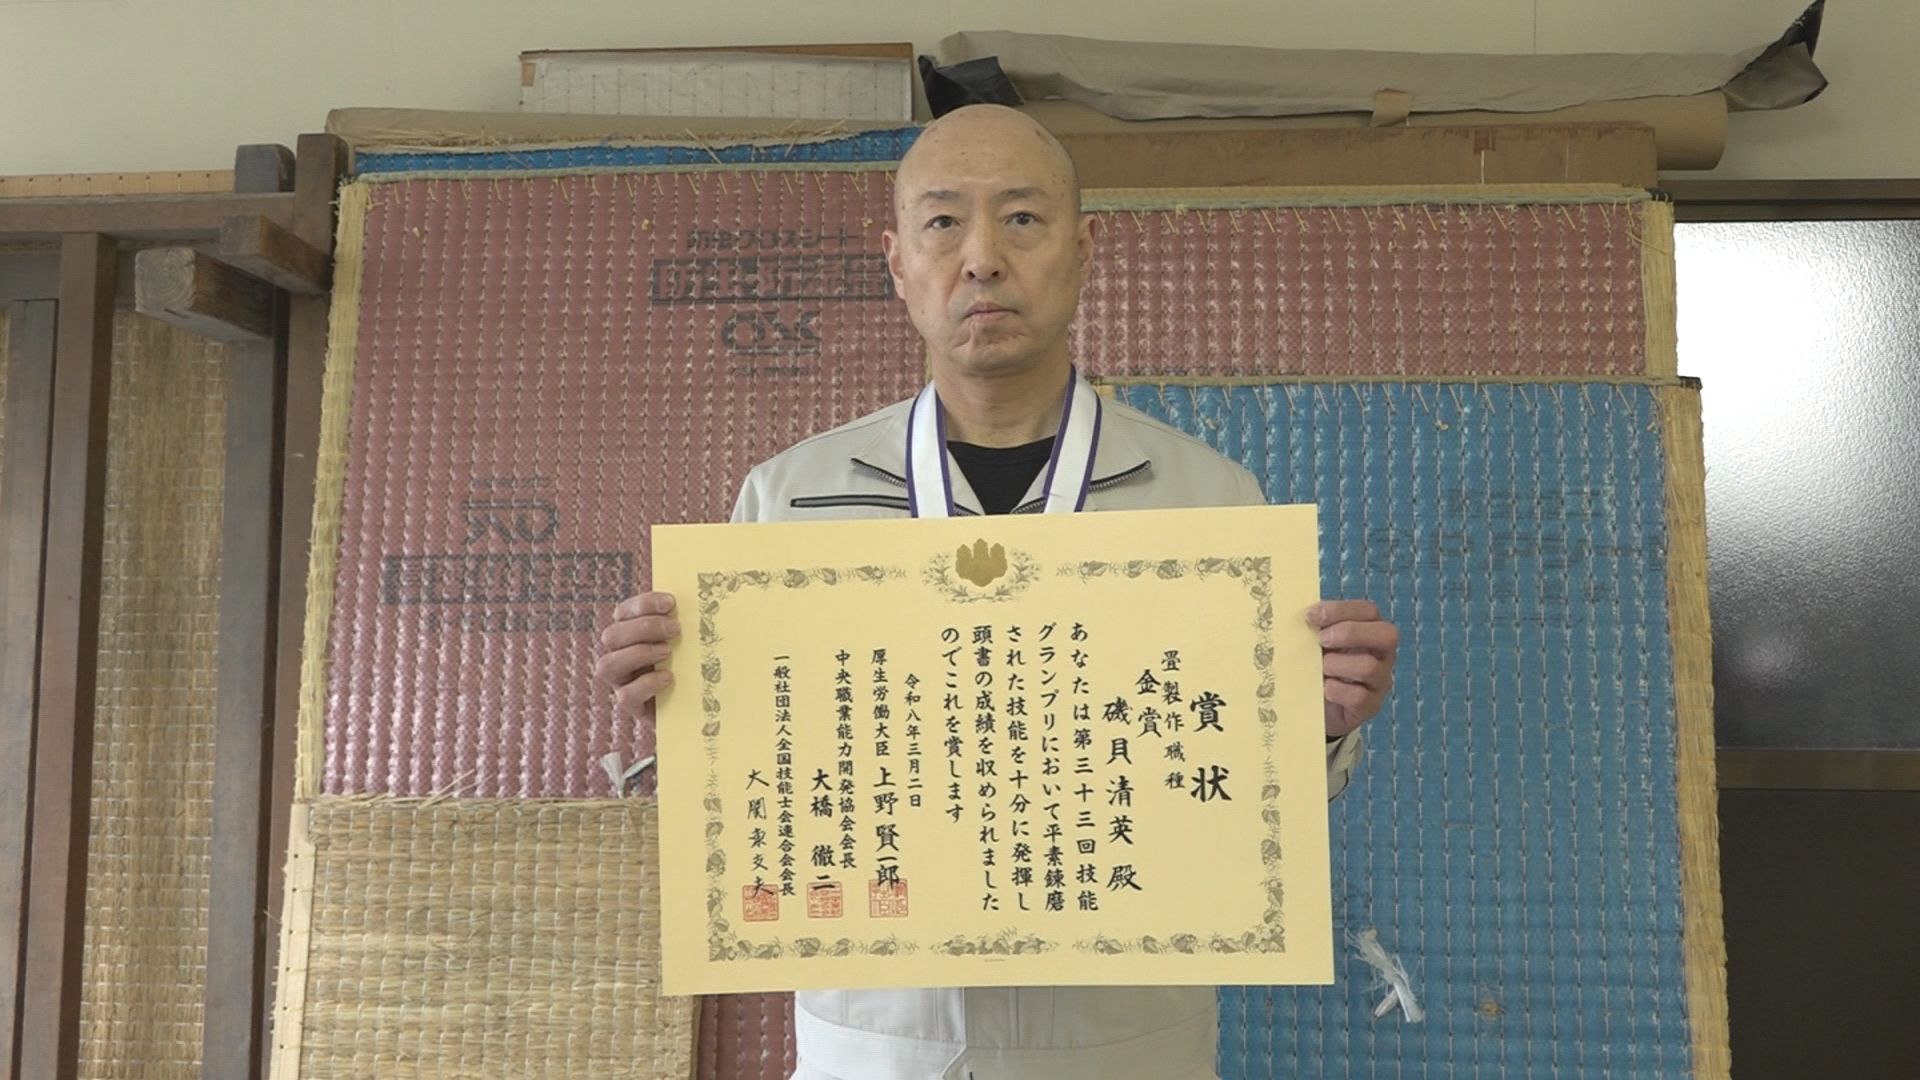 賞状
畳製作職種
金賞
磯貝清英殿
あなたは第三十三回技能
グランプリにおいて平素錬磨
された技能を十分に発揮し
頭書の成績を収められました
のでこれを賞します
令和八年三月二日
厚生労働大臣 上野賢一郎
中央職業能力開発協会会長
大橋徹二
一般社団法人全国技能士会連合会会長
大関東支夫